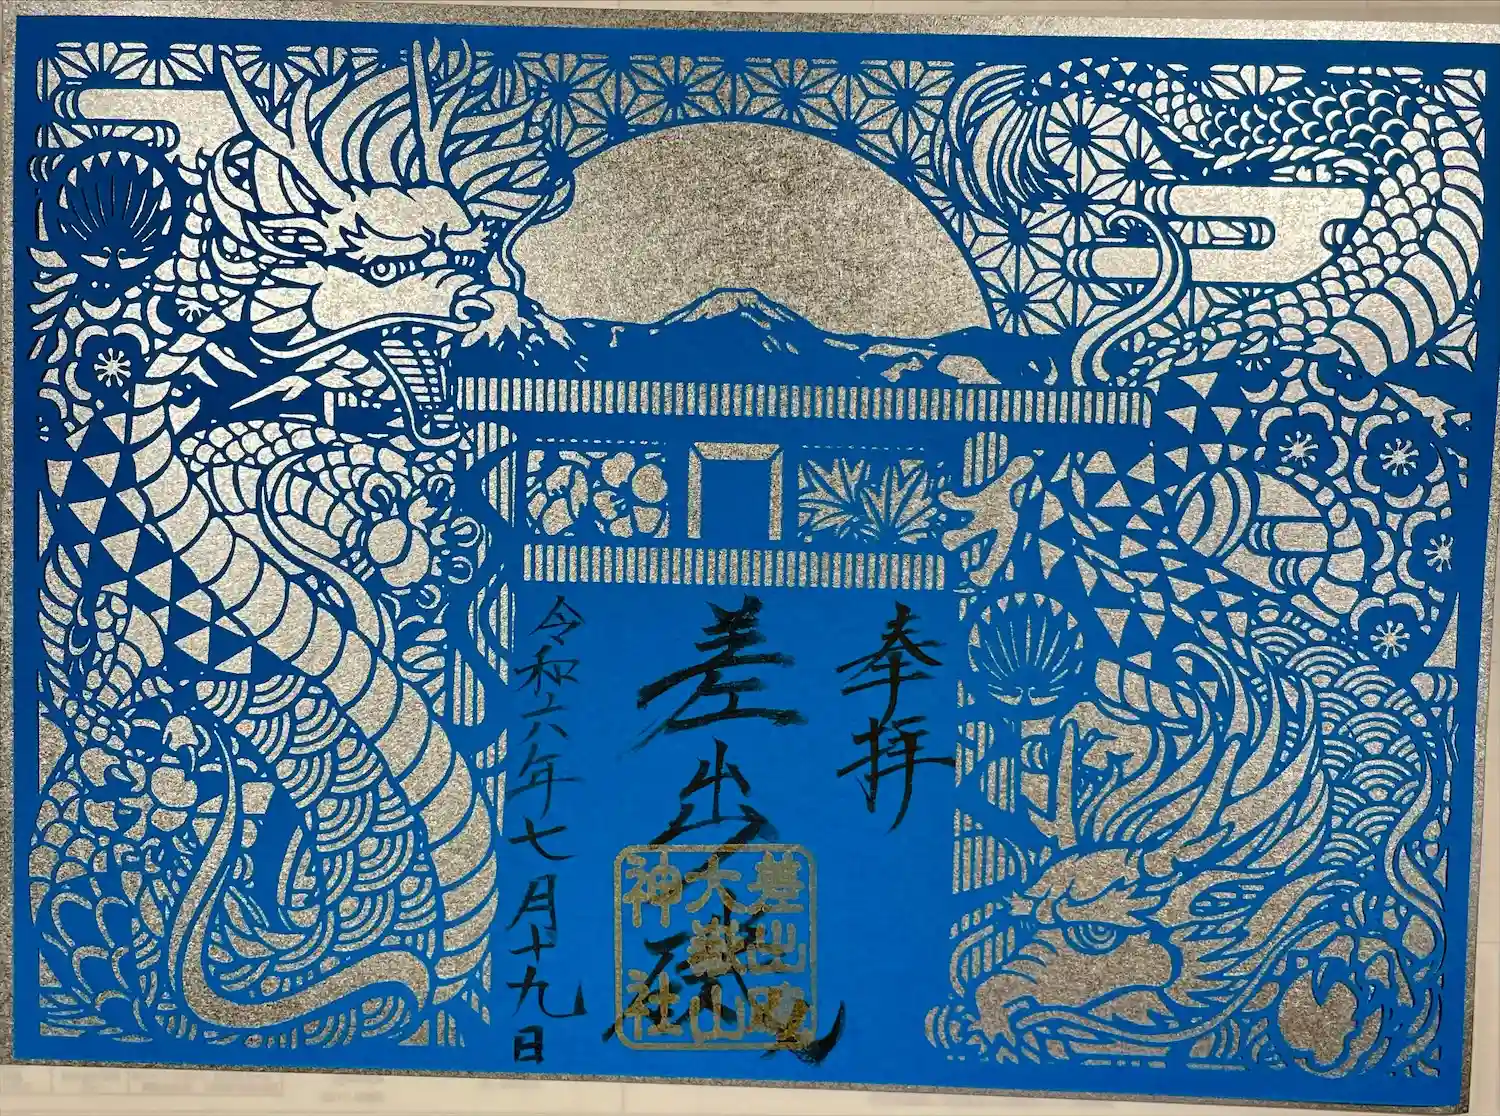 奉拝
差出磯
差出磯
大嶽山
神社
令和六年七月十九日